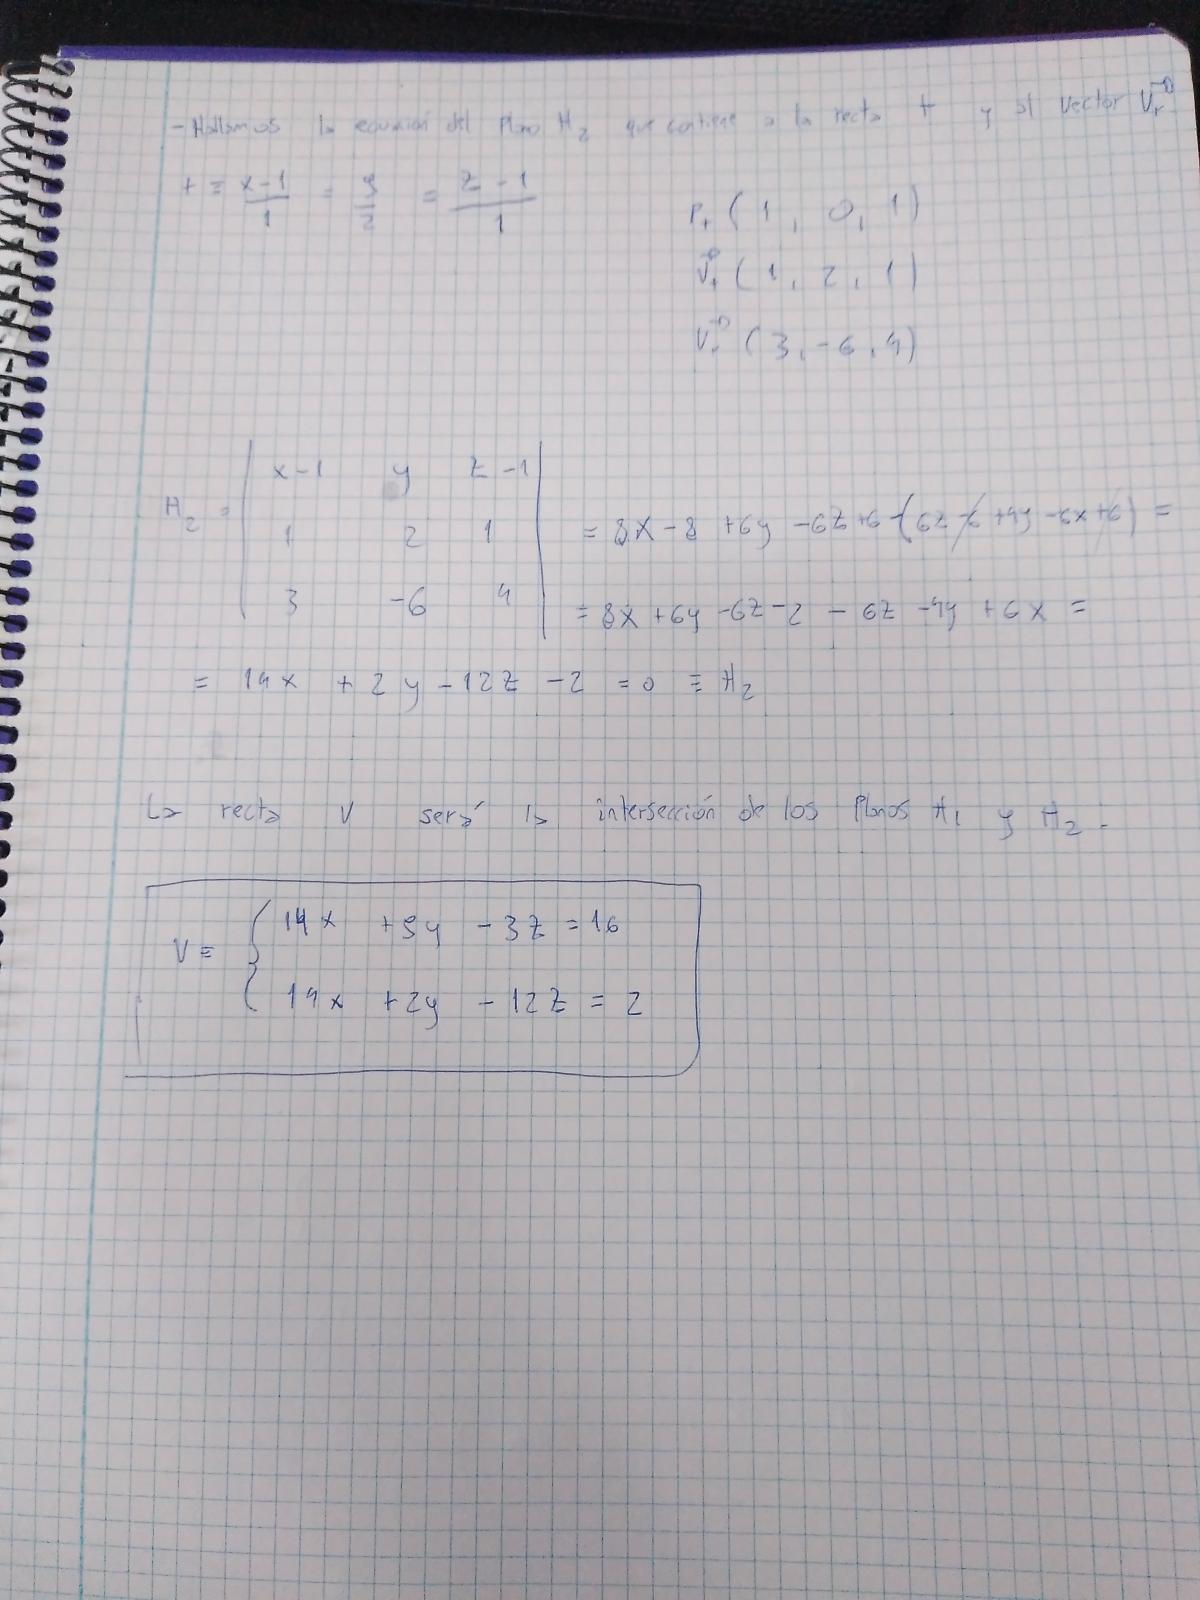 - Hallamos la ecuación del plano π2 que contiene a la recta t y al vector Vr→
t ≡ x-1/1 = y/2 = z-1/1
Pt (1, 0, 1)
Vt→ (1, 2, 1)
Vr→ (3, -6, 4)
π2 = | x-1 y z-1 |
| 1 2 1 | = 8x - 8 + 6y - 6z + 6 - (6z - 6 + 4y - 6x + 6) =
| 3 -6 4 | = 8x + 6y - 6z - 2 - 6z - 4y + 6x =
= 14x + 2y - 12z - 2 = 0 ≡ π2
La recta V será la intersección de los planos π1 y π2.
V ≡ { 14x + 5y - 3z = 16
14x + 2y - 12z = 2